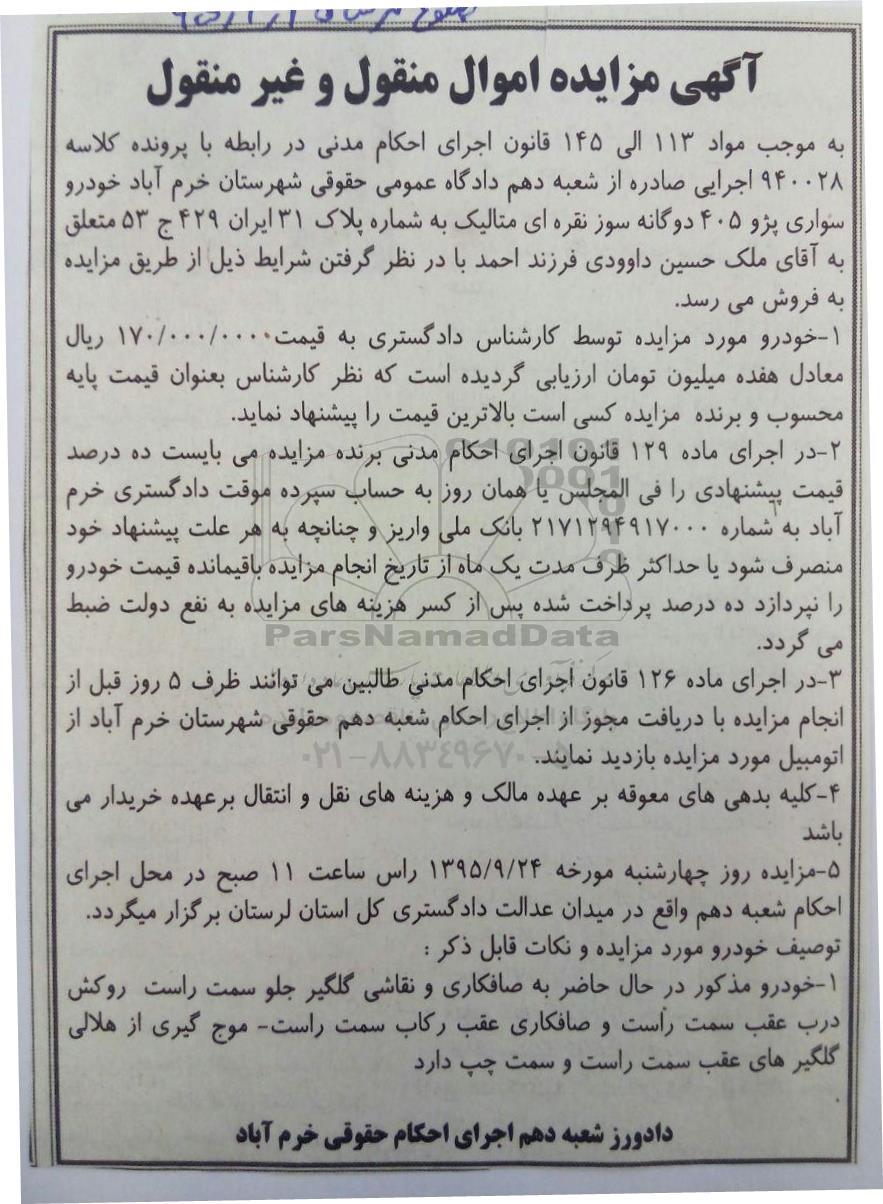 آگهی مزایده اموال منقول و غیر منقول
به موجب مواد ۱۱۳ الی ۱۴۵ قانون اجرای احکام مدنی در رابطه با پرونده کلاسه
۹۴۰۰۲۸ اجرایی صادره از شعبه دهم دادگاه عمومی حقوقی شهرستان خرم آباد خودرو
سواری پژو ۴۰۵ دوگانه سوز نقره ای متالیک به شماره پلاک ۳۱ ایران ۴۲۹ ج ۵۳ متعلق
به آقای ملک حسین داوودی فرزند احمد با در نظر گرفتن شرایط ذیل از طریق مزایده
به فروش می رسد.
۱-خودرو مورد مزایده توسط کارشناس دادگستری به قیمت۱۷۰/۰۰۰/۰۰۰۰ ریال
معادل هفده میلیون تومان ارزیابی گردیده است که نظر کارشناس بعنوان قیمت پایه
محسوب و برنده مزایده کسی است بالاترین قیمت را پیشنهاد نماید.
۲-در اجرای ماده ۱۲۹ قانون اجرای احکام مدنی برنده مزایده می بایست ده درصد
قیمت پیشنهادی را فی المجلس یا همان روز به حساب سپرده موقت دادگستری خرم
آباد به شماره ۲۱۷۱۲۹۴۹۱۷۰۰۰ بانک ملی واریز و چنانچه به هر علت پیشنهاد خود
منصرف شود یا حداکثر ظرف مدت یک ماه از تاریخ انجام مزایده باقیمانده قیمت خودرو
را نپردازد ده درصد پرداخت شده پس از کسر هزینه های مزایده به نفع دولت ضبط
می گردد.
ParsNamadData
۳-در اجرای ماده ۱۲۶ قانون اجرای احکام مدنی طالبین می توانند ظرف ۵ روز قبل از
انجام مزایده با دریافت مجوز از اجرای احکام شعبه دهم حقوقی شهرستان خرم آباد از
اتومبیل مورد مزایده بازدید نمایند.
۰۲۱-۸۸۳۴۹۶۷۰
۴-کلیه بدهی های معوقه بر عهده مالک و هزینه های نقل و انتقال برعهده خریدار می
باشد
۵-مزایده روز چهارشنبه مورخه ۱۳۹۵/۹/۲۴ راس ساعت ۱۱ صبح در محل اجرای
احکام شعبه دهم واقع در میدان عدالت دادگستری کل استان لرستان برگزار میگردد.
توصیف خودرو مورد مزایده و نکات قابل ذکر :
۱-خودرو مذکور در حال حاضر به صافکاری و نقاشی گلگیر جلو سمت راست روکش
درب عقب سمت راست و صافکاری عقب رکاب سمت راست- موج گیری از هلالی
گلگیر های عقب سمت راست و سمت چپ دارد
دادورز شعبه دهم اجرای احکام حقوقی خرم آباد